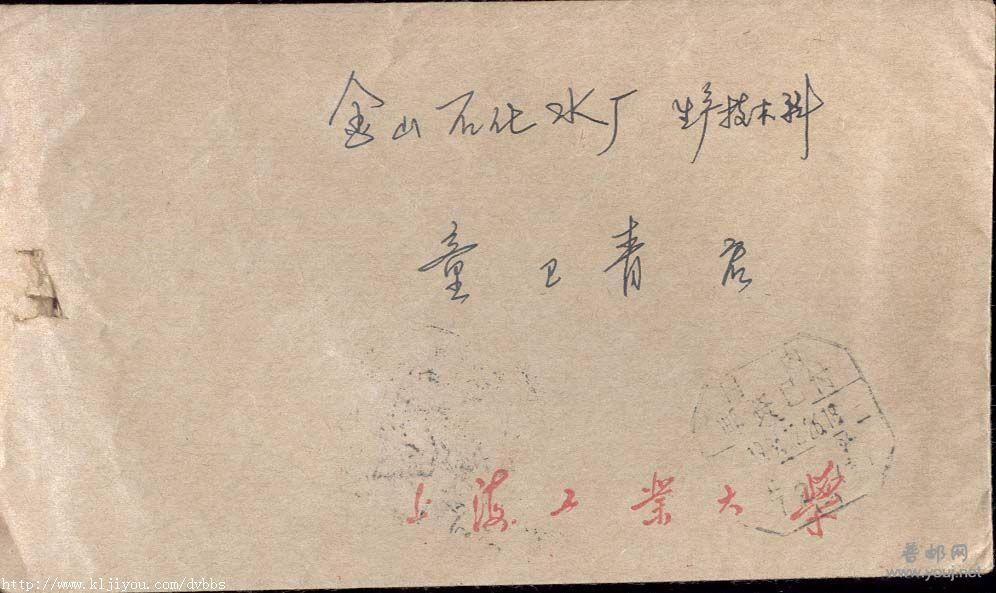 金山石化水厂 生产技术科
童卫青启
邮资已
上海工业大學
普邮网
www.youj.net
http://www.kljiyou.com/dvbbs